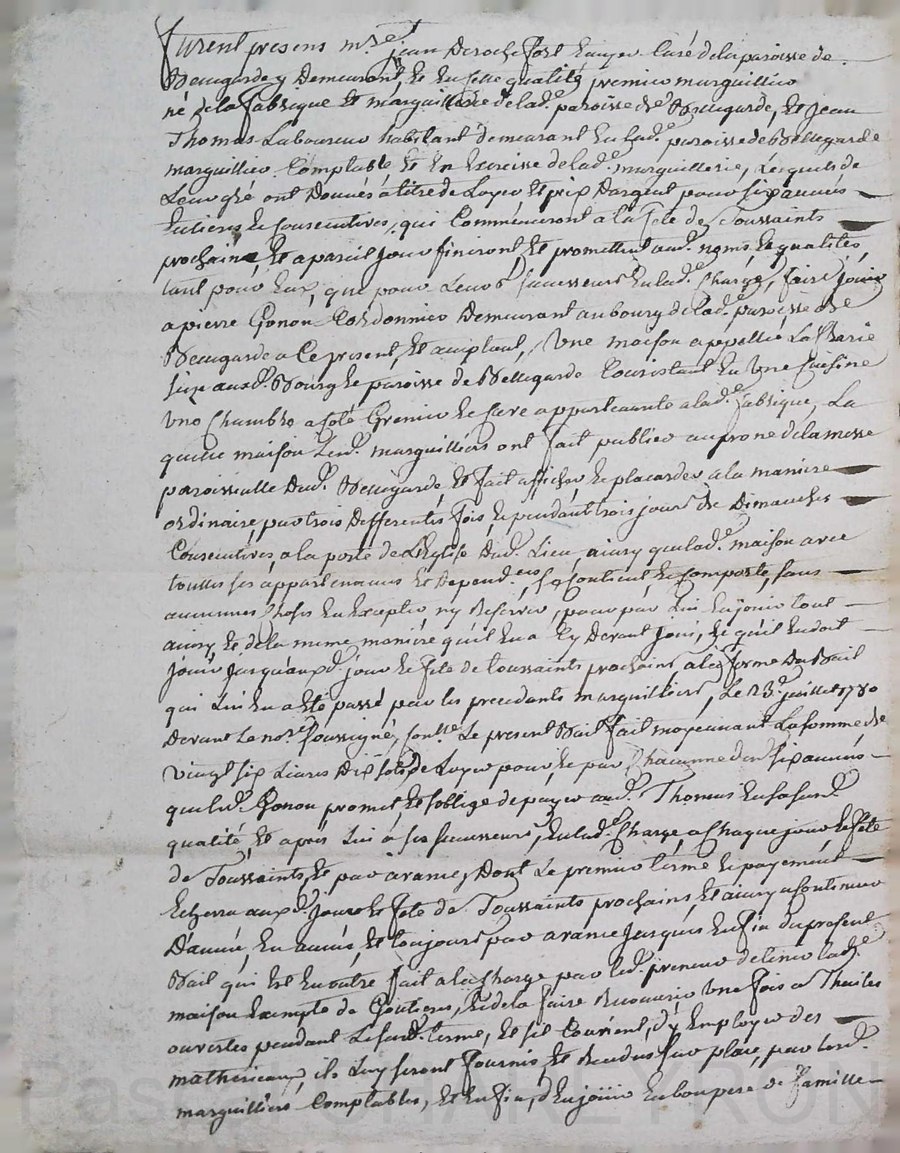 furent presens m.re jean Derochefort Ecuyer Curé de la paroisse de
Bellegarde y Demeurant, et en cette qualité premier marguillier
né de la fabrique et marguillerie de lad.e paroisse de Bellegarde, et jean
Thomas Laboureur habitant Demeurant en lad.e paroisse de Bellegarde
marguillier Comptable et en Exercise de lad.e marguillerie, Lesquels de
Leur gré ont Donnés a titre de Loyer et prix D'argent pour six années
Entieres et consecutives, qui Commenceront a la fete de Toussaints
prochaine, et a pareil jour finiront et promettent aud. noms et qualités,
tant pour Eux, que pour Leurs successeurs en lad.e Charge, faire jouir
a pierre Gonon Cordonnier Demeurant au bourg de lad.e paroisse de
Bellegarde a Ce present et acceptant, Une maison appellée La
size aud. Bourg et paroisse de Bellegarde Consistant en Une Cuisine
Une Chambre a coté Grenier et Cave appartenante a lad.e fabrique, La
quelle maison Lesd. marguilliers ont fait publier au prone de la messe
paroissialle dud. Bellegarde, et fait afficher et placarder a la maniere
ordinaire, par trois Differentes fois, et pendant trois jours de Dimanches
Consecutives, a la porte de L'Eglise dud. Lieu, ainsy que lad.e maison avec
touttes ses appartenances et Depend.ces se Contient et Comporte, sans
aucunnes Choses en Excepter ny Reserver, pour par Lui En jouir tout
ainsy, et de la meme maniere qu'il en a Cy Devant joui, et qu'il en doit
jouir jusqu'aud. jour et fete de toussaints prochains a la forme du Bail
qui Lui en a eté passé par les precedents marguilliers, Le 23.e juillet 1780
Devant Le no.re soussigné, Le present Bail fait moyennant La somme de
vingt six Livres Dix sols de Loyer pour et par Chacunne desd. six années
que led. Gonon promet et s'oblige de payer aud. Thomas En sa susd.e
qualité, et après Lui à ses successeurs, en lad.e Charge a Chaque jour et fete
de Toussaints, et par avance, Dont Le premier terme et payement
Echerra aud. jour et fete de Toussaints prochains, et ainsy a Continuer
D'année, en année, et toujours par avance jusques en fin du present
Bail qui est en outre fait a la Charge par led. preneur de tenir lad.e
maison Exempte de Goutieres, et de la faire Recouvrir Une fois a Thuiles
ouvertes pendant Le susd. terme, et s'il Convient, d'y Employer des
mathereaux, ils Luy seront fournis et Rendus sur place, par lesd.
marguilliers Comptables, et En fin, d'En jouir En bon pere de famille